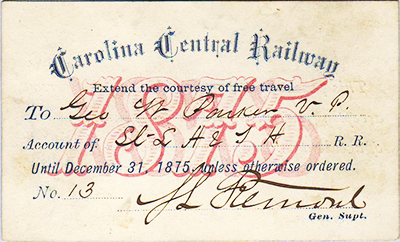 Carolina Central Railway
Extend the courtesy of free travel
To Geo W Parker V. P.
Account of St L A & T H R. R.
Until December 31, 1875, unless otherwise ordered.
No. 13
Gen. Supt.
1875